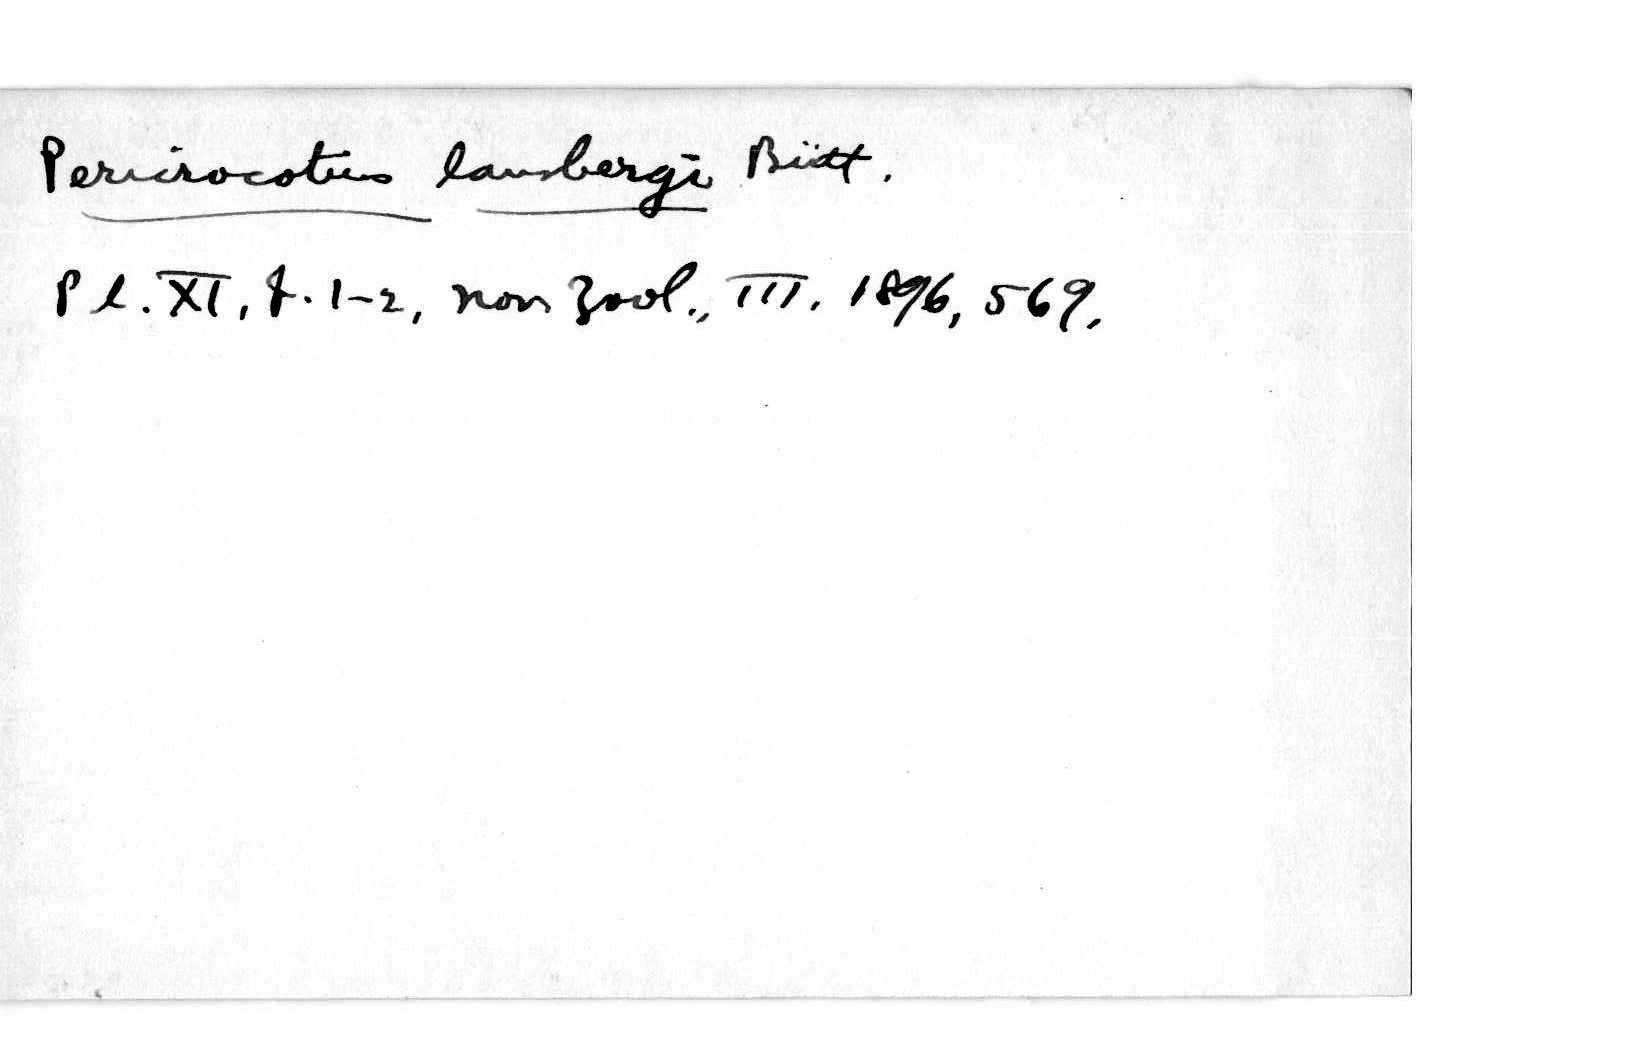 Pericrocotus lansbergi Bütt.
Pl. XI, f. 1-2, nov Zool., III. 1896, 569.